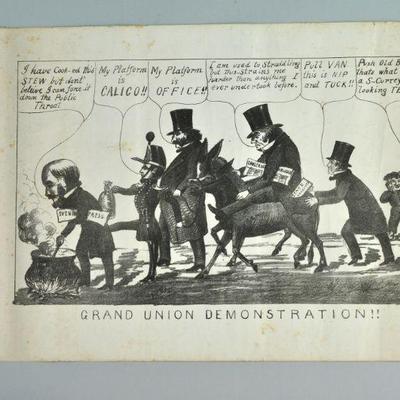 I have Cook-ed this
STEW but dont
beleive I can force it
down the Public
Throat
My Platform
is
CALICO!!
My Platform
is
OFFICE!!
I am used to Straddling
but this Strains me
harder than anything I
ever undertook before.
Pull VAN
this is NIP
and TUCK!!
Push Old
Thats what
a S-Curvey
looking
PRESS
GRAND UNION DEMONSTRATION!!